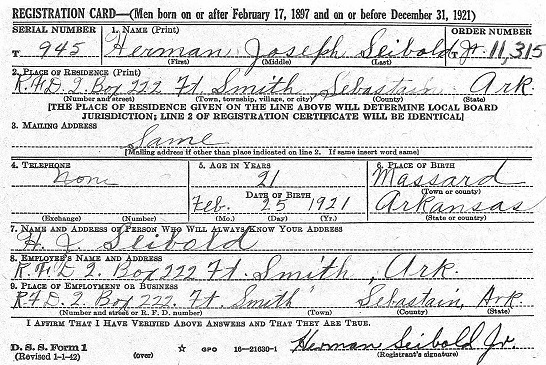 REGISTRATION CARD—(Men born on or after February 17, 1897 and on or before December 31, 1921)
SERIAL NUMBER 1. NAME (Print) ORDER NUMBER
T 945 Herman Joseph Seibold Jr. T 11,315
(First) (Middle) (Last)
2. PLACE OF RESIDENCE (Print)
R.F.D. 2. Box 222 Ft. Smith Sebastain Ark.
(Number and street) (Town, township, village, or city) (County) (State)
[THE PLACE OF RESIDENCE GIVEN ON THE LINE ABOVE WILL DETERMINE LOCAL BOARD
JURISDICTION; LINE 2 OF REGISTRATION CERTIFICATE WILL BE IDENTICAL]
3. MAILING ADDRESS
Same
[Mailing address if other than place indicated on line 2. If same insert word same]
4. TELEPHONE 5. AGE IN YEARS 6. PLACE OF BIRTH
None 21 Massard
DATE OF BIRTH (Town or county)
Feb. 25 1921 Arkansas
(Exchange) (Number) (Mo.) (Day) (Yr.) (State or country)
7. NAME AND ADDRESS OF PERSON WHO WILL ALWAYS KNOW YOUR ADDRESS
H. J. Seibold
8. EMPLOYER'S NAME AND ADDRESS
R.F.D 2. Box 222 Ft. Smith, Ark.
9. PLACE OF EMPLOYMENT OR BUSINESS
R.F.D. 2 Box 222. Ft. Smith Sebastain, Ark
(Number and street or R. F. D. number) (Town) (County) (State)
I AFFIRM THAT I HAVE VERIFIED ABOVE ANSWERS AND THAT THEY ARE TRUE.
D. S. S. Form 1
(Revised 1-1-42) (over) ☆ GPO 16—21630-1 Herman Seibold Jr.
(Registrant's signature)